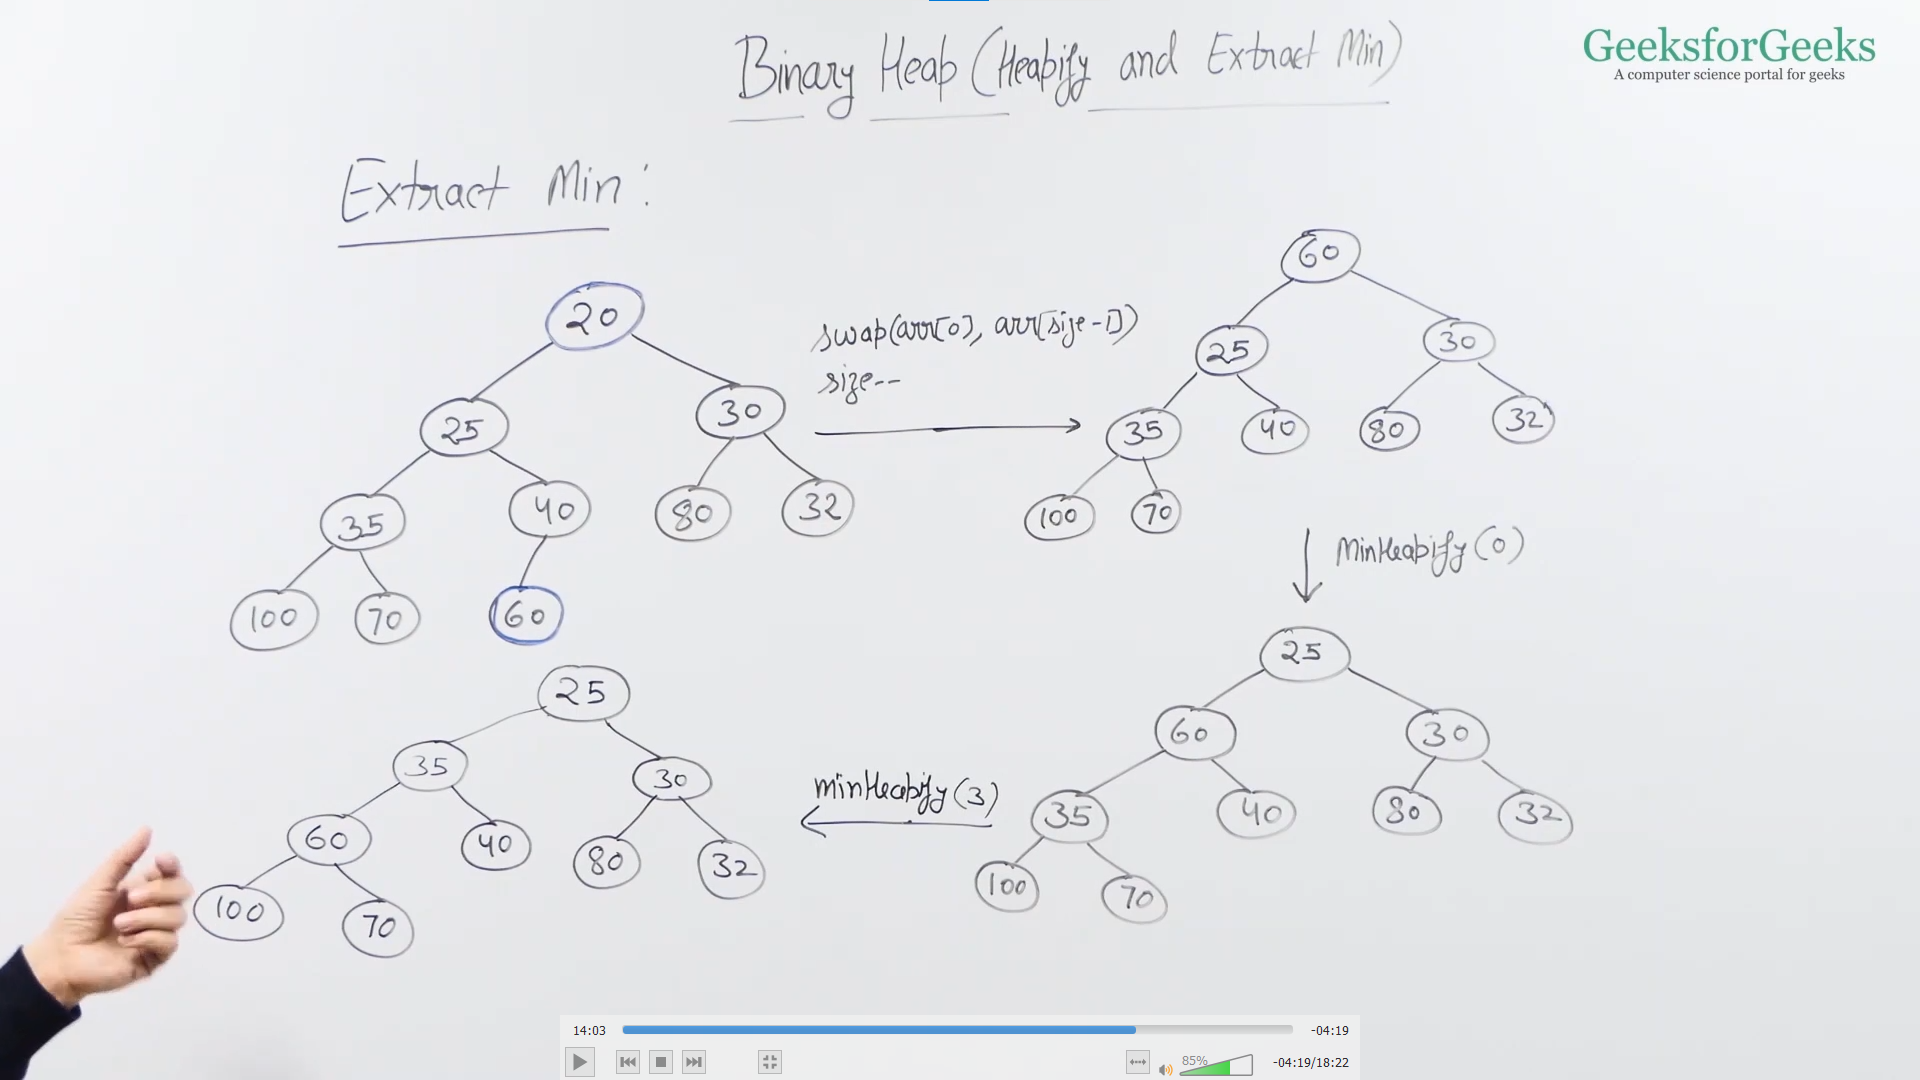 Binary Heap (Heapify and Extract Min)
GeeksforGeeks
A computer science portal for geeks
Extract Min:
20
25
30
35
40
80
32
100
70
60
swap(arr[0], arr[size-1])
size--
60
25
30
35
40
80
32
100
70
MinHeapify(0)
25
60
30
35
40
80
32
100
70
minHeapify(3)
25
35
30
60
40
80
32
100
70
14:03
-04:19
85%
-04:19/18:22